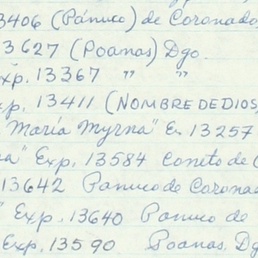 3406 (Pánuco) de Coronado
13627 (Poanas) Dgo.
Exp. 13367 " "
Exp. 13411 (NOMBRE DE DIOS)
María Myrna" E. 13257
" Exp. 13584 Coneto de C
13642 Panuco de Corona
" Exp. 13640 Panuco de
Exp. 13590 Poanas, Dg